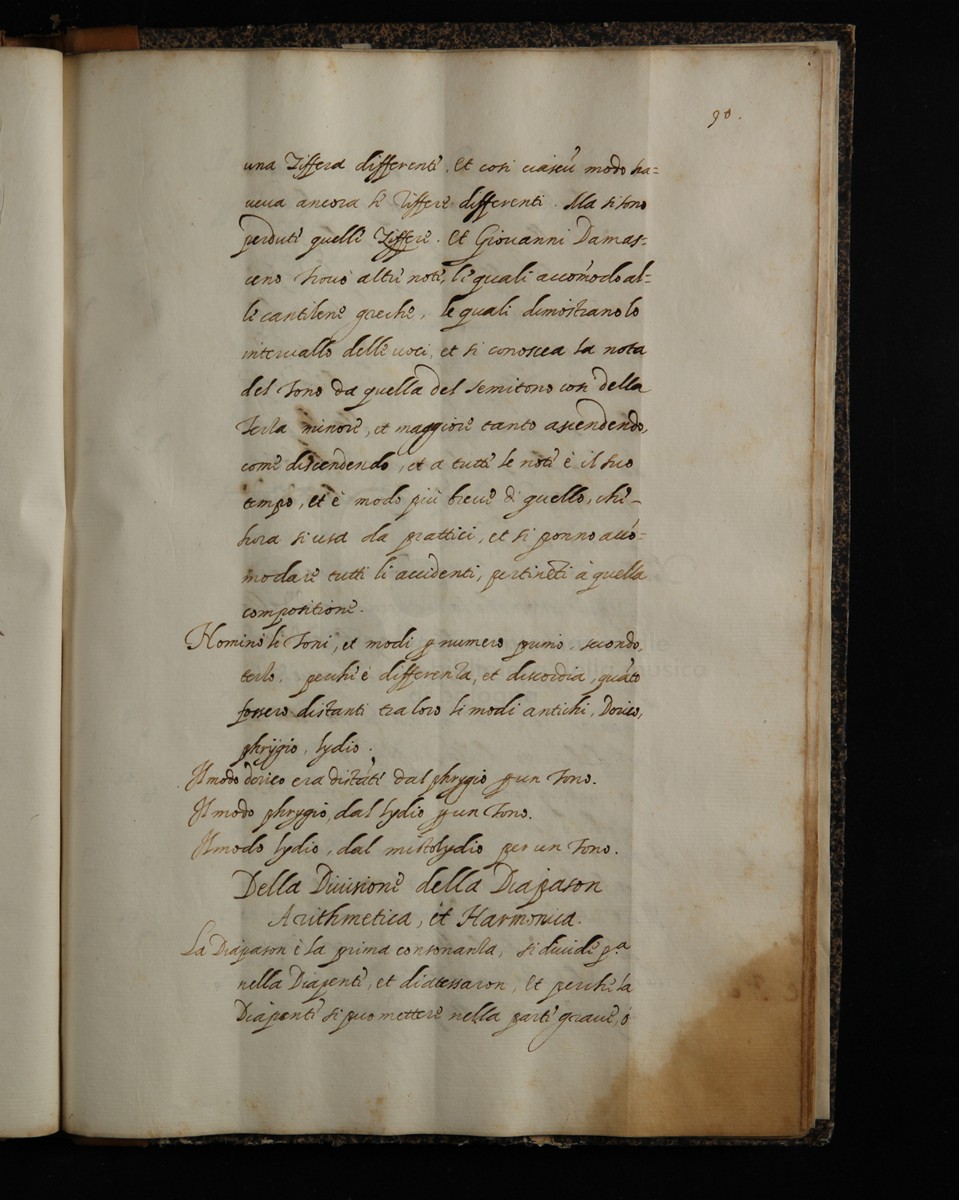 90.
una Ziffera differente. Et cosi ciascũ modo ha=
ueua ancora le Ziffere differenti. Ma si sono
perdute quelle Ziffere. Et Giouanni Damas=
ceno trouò altre note, le quali accõmodo al=
le cantilene greche, le quali dimostrano lo
interuallo delle uoci, et si conoscea la nota
del Tono da quella del semitono cosi della
Terza minore, et maggiore tanto ascendendo,
come discendendo, et a tutte le note è il suo
tempo, et è modo più breue di quello, che
hora si usa da prattici, et si ponno accõ=
modare tutti li accidenti, pertinẽti à quella
compositione.
Homino li Toni, et modi p numero primo, secondo,
terzo, perche è differenza, et discordia, quãto
fossero distanti tra loro li modi antichi, Dorico,
phrygio, lydio.
Il modo dorico era distãte dal phrygio p un Tono.
Il modo phrygio, dal lydio p un Tono.
Il modo lydio, dal mistolydio per un Tono.
Della Diuisione della Diapason
Arithmetica, et Harmonica.
La Diapason è la prima consonanza, si diuide pª
nella Diapente, et diatessaron, Et perche la
Diapente si puo mettere nella parte graue, ò